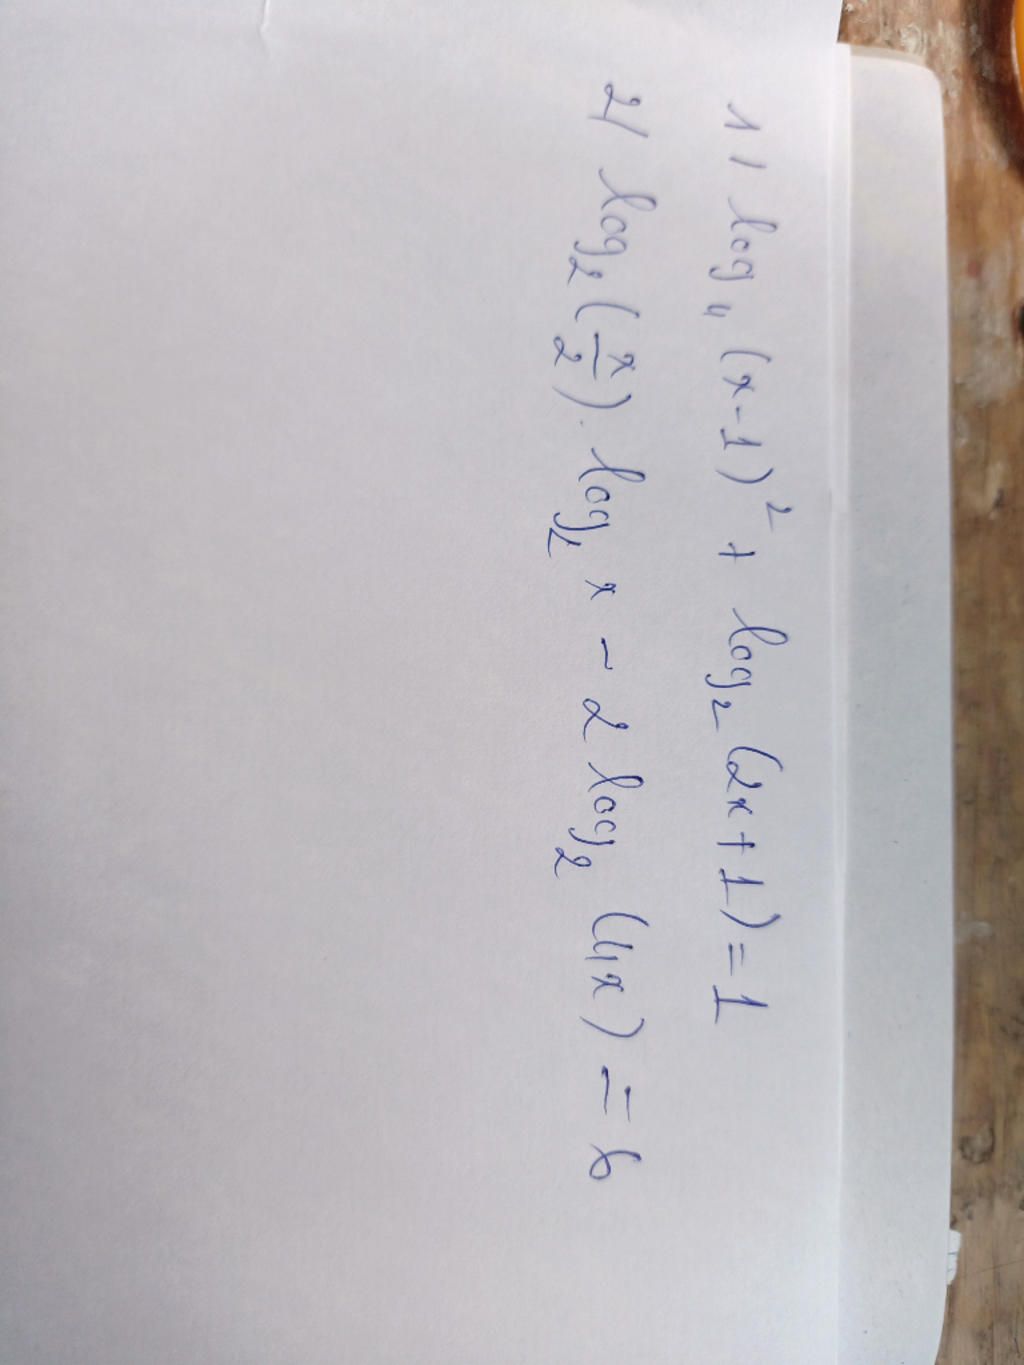 1) log₄ (x-1)² + log₂ (2x+1) = 1
2) log₂ (x/2) . log₂ x - 2 log₂ (4x) = 6